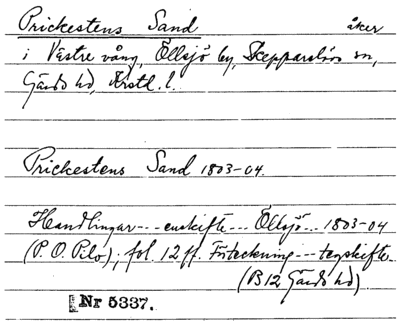 Prickestens Sand åker
i Västre vång, Öllsjö by, Skepparslövs sn,
Gärds hd, Krstl. l.
Prickestens Sand 1803-04.
Handlingar --- enskifte --- Öllsjö... 1803-04
(P. O. Pilo); fol. 12 ff. Förteckning --- tegskifte.
(B12 Gärds hd).
Nr 5337.